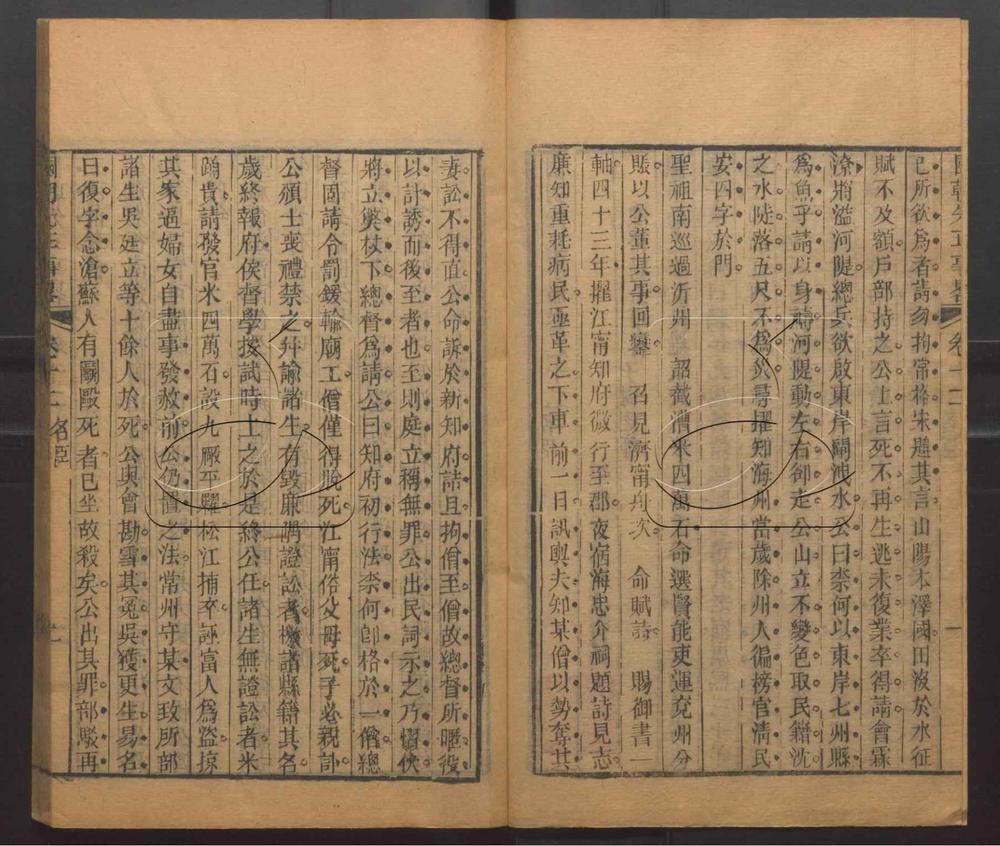 國朝先正事畧 卷十二 一
已所欲爲者請勿拘常格朱題其言山陽本澤國田沒於水征
賦不及額戶部持之公上言死不再生逃未復業卒得請會霖
潦將溢河隄總兵欲啟東岸閘洩水公曰柰何以東岸七州縣
爲魚乎請以身禱河隄動左右卻走公山立不變色取民籍沈
之水陡落五尺不爲災尋擢知海州當歲除州人徧榜官淸民
安四字於門
聖祖南巡過沂州 詔截漕米四萬石命選賢能吏運兗州分
賑以公董其事回鑾 召見濟甯舟次 命賦詩 賜御書一
軸四十三年擢江甯知府微行至郡夜宿海忠介祠題詩見志
廉知重耗病民亟革之下車前一日訊輿夫知某僧以勢奪其
妻訟不得直公命訴於新知府詰旦拘僧至僧故總督所暱役
以計誘而後至者也至則庭立稱無罪公出民詞示之乃慴伏
將立斃杖下總督爲請公曰知府初行法柰何卽格於一僧總
督固請令罰鍰輸廟工僧僅得脫死江甯俗父母死子必親訃
公頒士喪禮禁之幷諭諸生有毀廉隅證訟者檄諸縣籍其名
歲終報府俟督學按試時上之於是終公任諸生無證訟者米
踊貴請發官米四萬石設九厰平糶松江捕卒誣富人爲盜掠
其家逼婦女自盡事發赦前公仍置之法常州守某文致所部
諸生吳廷立等十餘人於死公與會勘雪其冤吳獲更生易名
曰復字念滄蘇人有鬬毆死者已坐故殺矣公出其罪部駁再
國朝先正事畧 卷十二 名臣 二